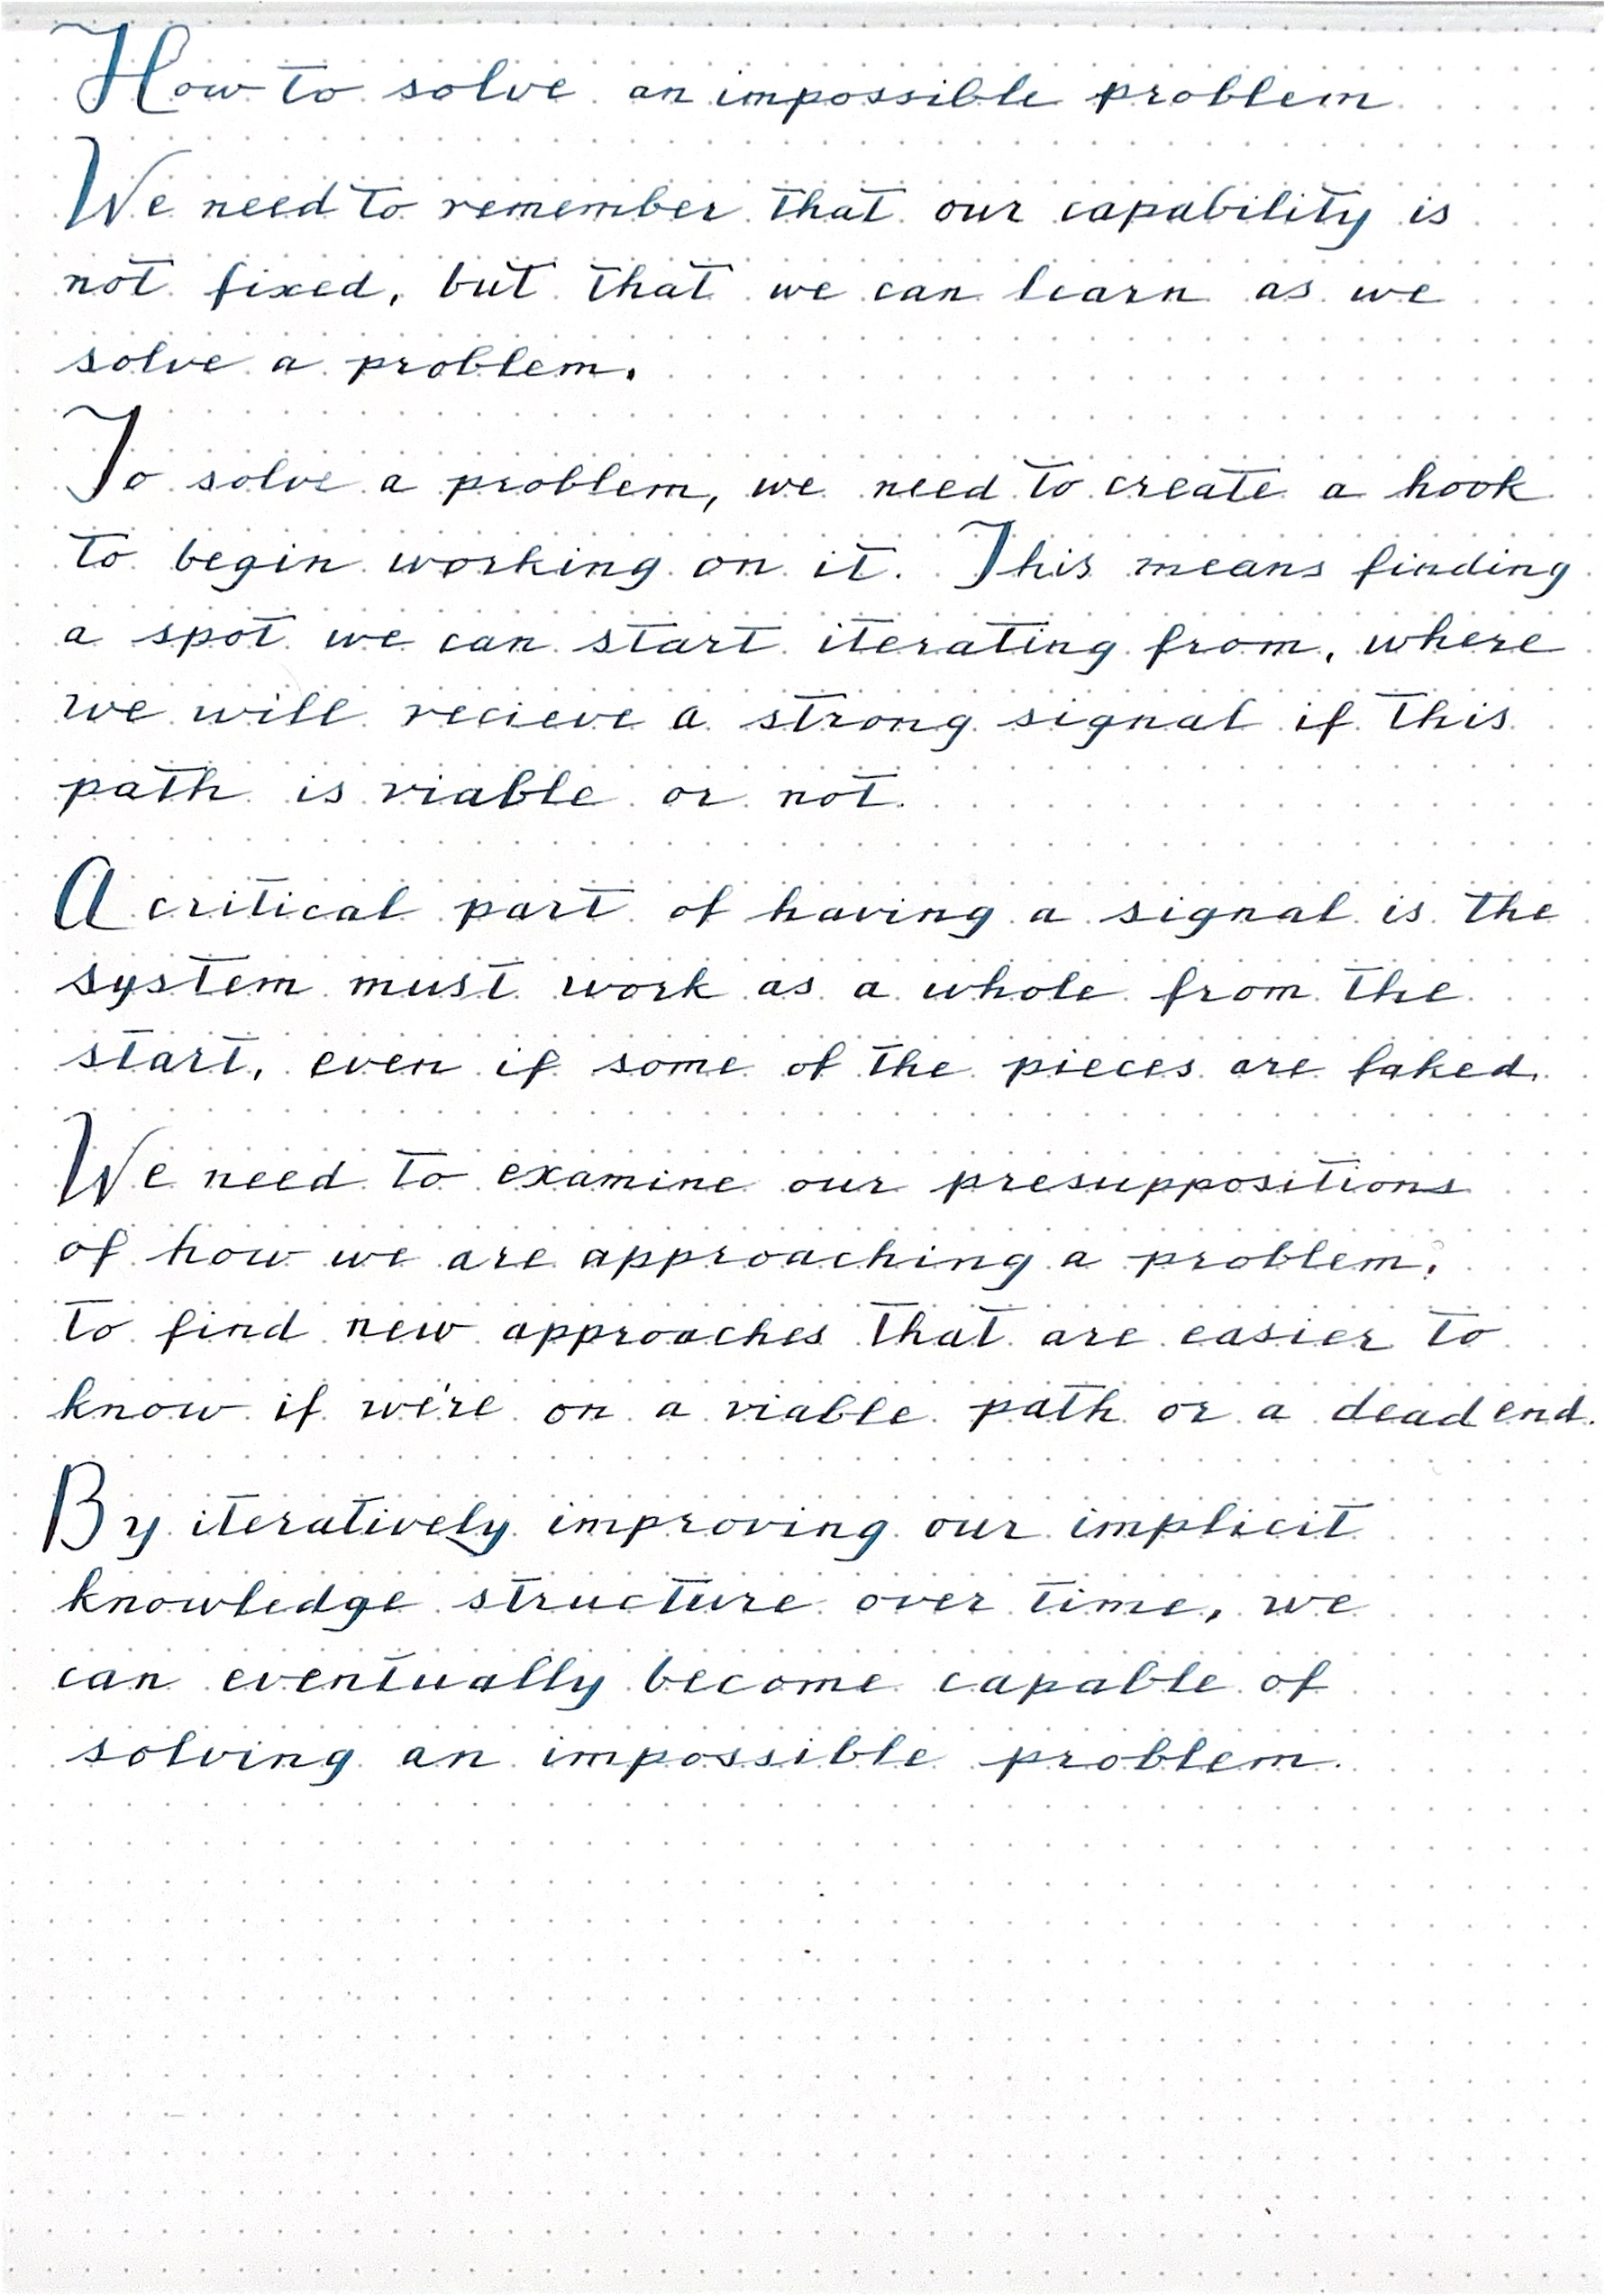 How to solve an impossible problem
We need to remember that our capability is
not fixed, but that we can learn as we
solve a problem.
To solve a problem, we need to create a hook
to begin working on it. This means finding
a spot we can start iterating from, where
we will recieve a strong signal if this
path is viable or not.
A critical part of having a signal is the
system must work as a whole from the
start, even if some of the pieces are faked.
We need to examine our presuppositions
of how we are approaching a problem,
to find new approaches that are easier to
know if we're on a viable path or a dead end.
By iteratively improving our implicit
knowledge structure over time, we
can eventually become capable of
solving an impossible problem.